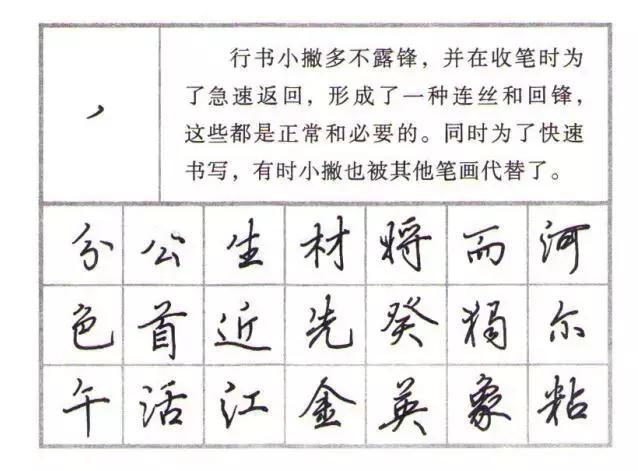 行书小撇多不露锋，并在收笔时为
了急速返回，形成了一种连丝和回锋，
这些都是正常和必要的。同时为了快速
书写，有时小撇也被其他笔画代替了。
分公生材将而河
色首近先癸猲尔
午活江金英象粘